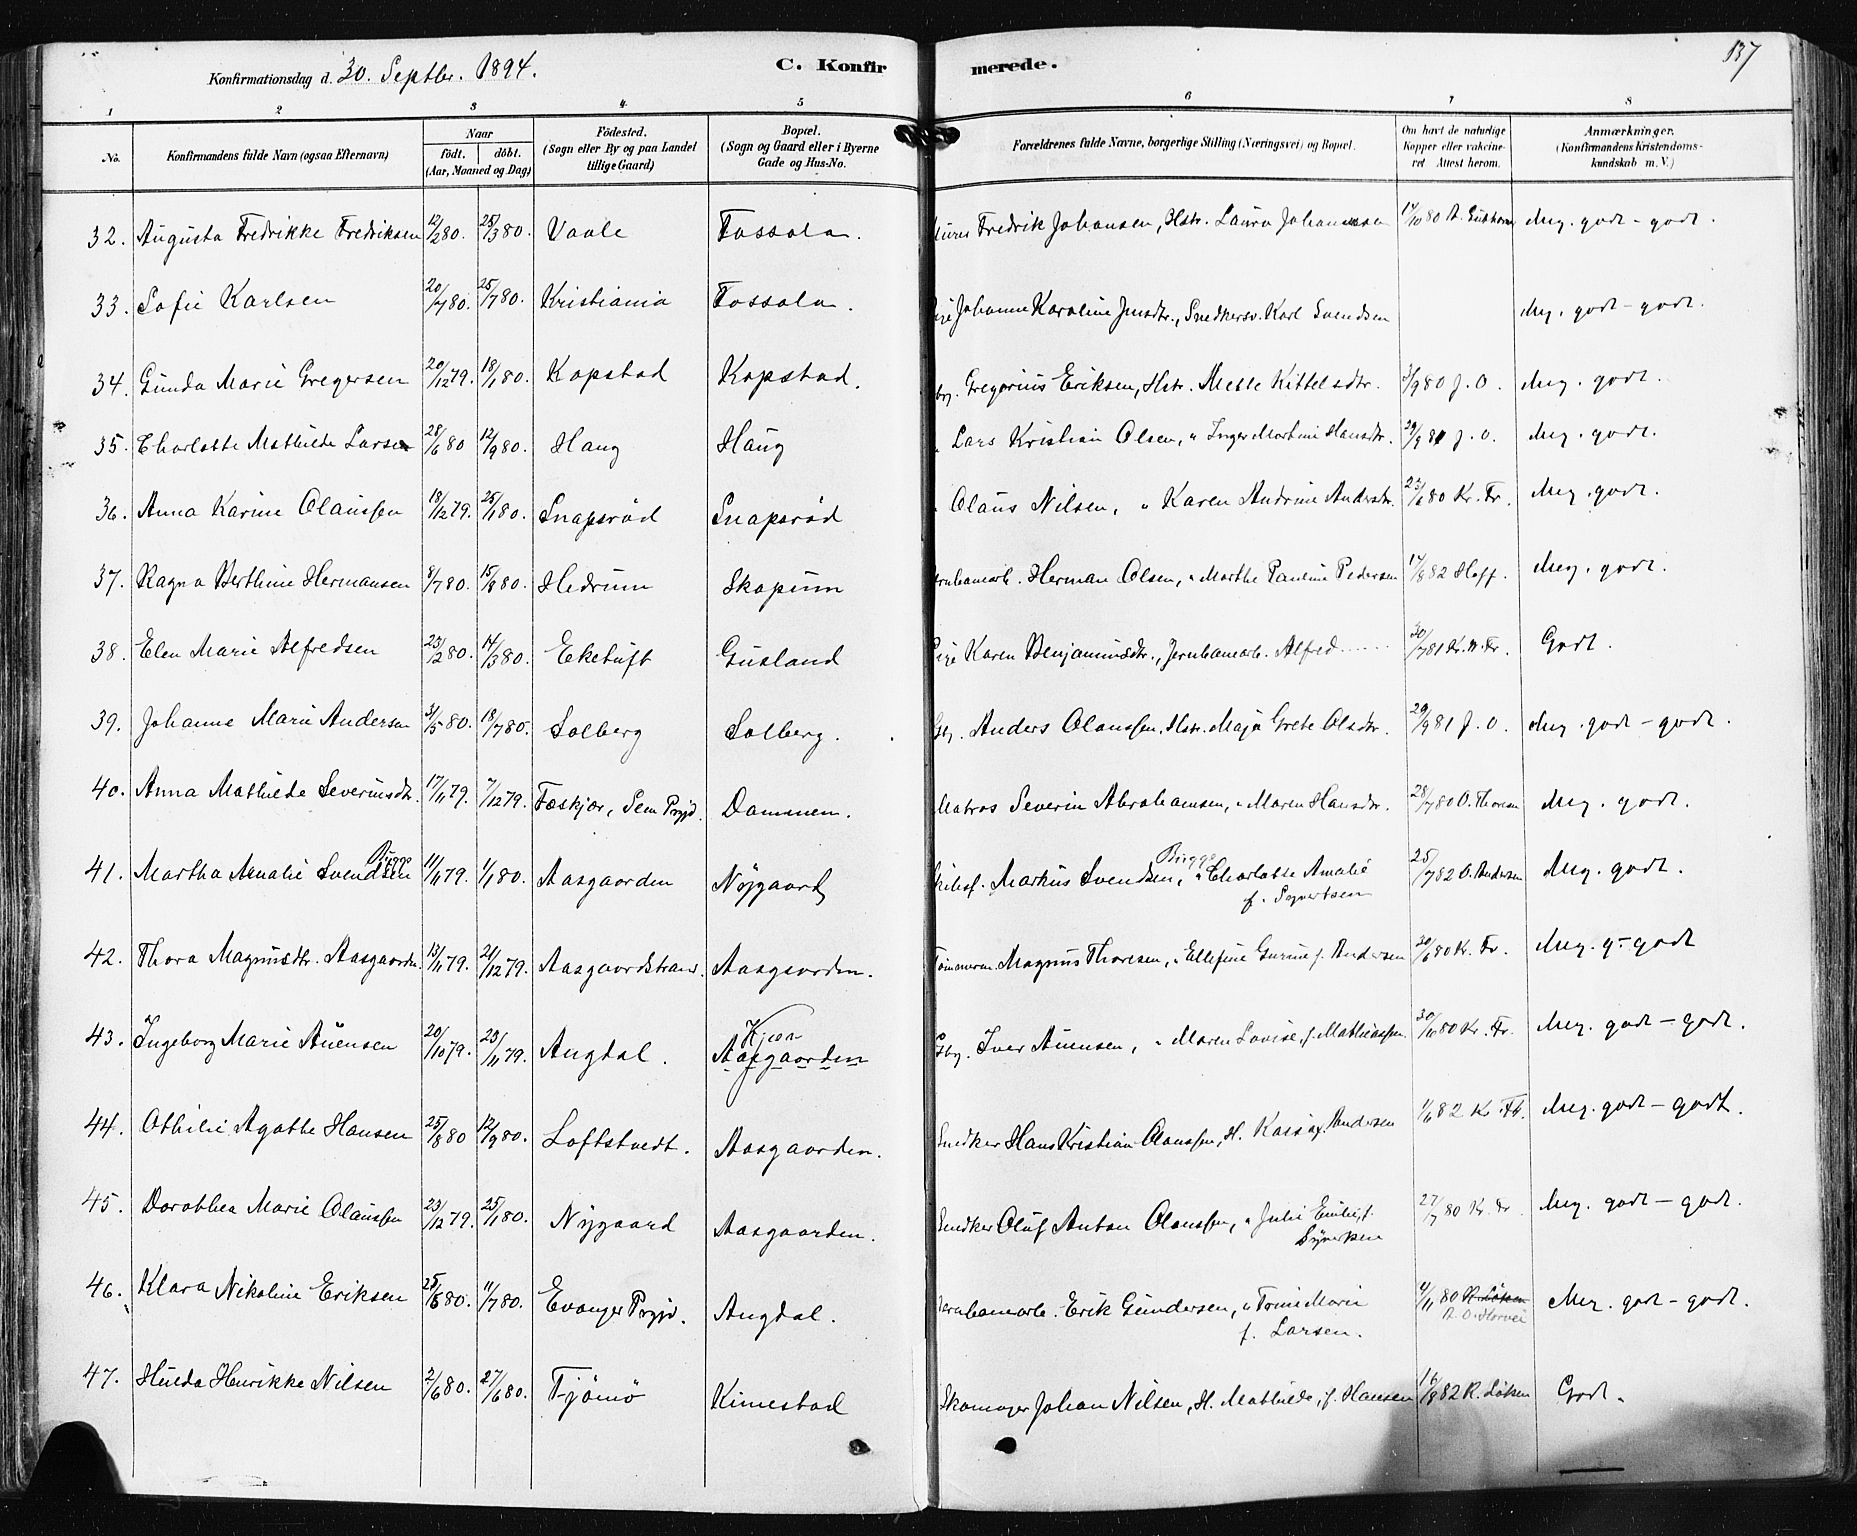 137
Konfirmationsdag d. 30. Septbr. 1894.
C. Konfirmerede.
1 2 3 4 5 6 7 8
No. Konfirmandens fulde Navn (ogsaa Efternavn) Naar født. døbt. (Aar, Maaned og Dag) Fødested. (Sogn eller By og paa Landet tillige Gaard) Bopæl. (Sogn og Gaard eller i Byerne Gade og Hus-No. Forældrenes fulde Navne, borgerlige Stilling (Næringsvei) og Bopæl. Om havt de naturlige Kopper eller vakcineret Attest herom. Anmærkninger. (Konfirmandens Kristendomskundskab m. V.)
32. Augusta Fredrikke Fredriksen 12/2 80. 25/3 80. Vaale Fossala. Fredrik Johansen, Hstr. Laura Johannessen 17/10 80 Meg. godt - godt.
33. Sofie Karlsen 20/7 80. 25/7 80. Kristiania Fossala. Johanne Karoline Jensdtr., Snedkersv. Karl Svendsen Meg. godt - godt.
34. Gunda Marie Gregersen 20/12 79. 18/1 80. Kopstad Kopstad. Gregorius Eriksen, Hstr. Mette Kittelsdtr. 3/9 80 J. O. Meg. godt.
35. Charlotte Mathilde Larsen 28/6 80 12/9 80. Haug Haug Lars Kristian Olsen, " Inger Martine Hansdtr. 29/9 81 J. O. Meg. godt.
36. Anna Karine Olaussen 18/12 79. 25/1 80. Snapsrød Snapsrød Olaus Nilsen, " Karen Andrine Andersdtr. 23/6 80 Kr. Fr. Meg. godt.
37. Ragna Berthine Hermansen 8/7 80. 15/8 80. Hedrum Skopum Jernbanearb. Herman Olsen, " Marthe Pauline Pedersen 17/8 82 Hoff. Meg. godt.
38. Elen Marie Alfredsen 23/2 80. 14/3 80. Eketuft Gusland Pige Karen Benjaminsdtr., Jernbanearb. Alfred ...... 30/7 81 Kr. N. Fr. Godt.
39. Johanne Marie Andersen 31/5 80. 18/7 80. Solberg Solberg. Gbr. Anders Olaussen. Hstr. Maja Grete Olsdtr. 29/9 81 J. O. Meg. godt - godt.
40. Anna Mathilde Severinsdtr. 17/11 79. 7/12 79. Foskjær, Sem Prgjd. Dammen. Matros Severin Abrahamsen, " Maren Hansdtr. 28/7 80 O. Thoresen Meg. godt.
41. Martha Amalie Svendsen Bugge 11/11 79. 1/1 80. Aasgaarden Nøjgaard Skibsf. Markus Svendsen, Bugge " Charlotte Amalie f. Syvertsen 25/7 82 O. Andersen Meg. godt.
42. Thora Magnusdtr. Aasgaarden 13/11 79. 21/12 79. Aasgaardstrand. Aasgaarden. Tømmerm. Magnus Thoresen, " Ellefine Gurine f. Andersen 20/6 80 Kr. Fr. Meg. g - godt
43. Ingeborg Marie Auensen 20/10 79. 23/11 79. Augdal. Kjær Aasgaarden Gbr. Iver Auensen, " Maren Lovise, f. Mathiassen. 30/11 80 Kr. Fr. Meg. godt - godt.
44. Othilie Agathe Hansen 25/8 80 12/9 80. Loftstvedt. Aasgaarden. Snedker Hans Kristian Olaussen, H. Kaisa f. Andersen 1/6 82 Kr. Fr. Meg. godt - godt.
45. Dorothea Marie Olaussen 23/12 79. 25/1 80. Nygaard Aasgaarden. Snedker Oluf Anton Olaussen, " Julie Emilie f. Syvertsen 27/7 80 Kr. Fr. Meg. godt - godt.
46. Klara Nikoline Eriksen 25/5 80. 11/7 80. Evanger Prgjd. Augdal. Jernbanearb. Erik Gundersen, " Trine Marie f. Larsen. 11/11 80 R. Løken Meg. godt - godt.
47. Hulda Henrikke Nilsen 2/6 80. 27/6 80. Tjømø Kimestad Skomager Johan Nilsen, H. Mathilde, f. Hansen 16/8 82 R. Løken Godt.